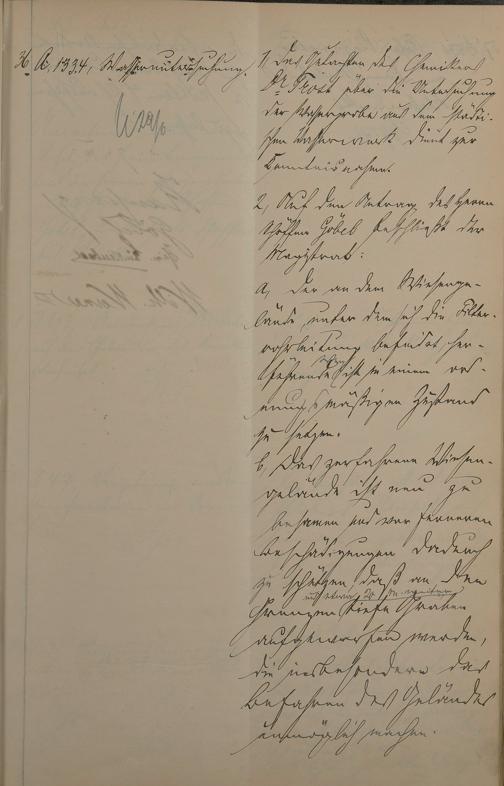 A. 1334, Wasseruntersuchung.
1, Das Gutachten des Chemikers
Dr. Trost über die Untersuchung
der Wasserprobe aus dem städti-
schen Wasserwerk dient zur
Kenntnisnahme.
2, Auf den Antrag des Herrn
Schöffen Göbel beschließt der
Magistrat:
a, der an dem Wiesenge-
lände, unter dem sich die Filter-
rohrleitung befindet, her-
führende ist in einen ord-
nungsmäßigen Zustand
zu setzen.
b, Das zerfahrene Wiesen-
gelände ist neu zu
besamen und vor ferneren
Beschädigungen dadurch
zu schützen, daß an den
Grenzen tiefe Graben
aufgeworfen werden,
die insbesondere das
Befahren des Geländes
unmöglich machen.